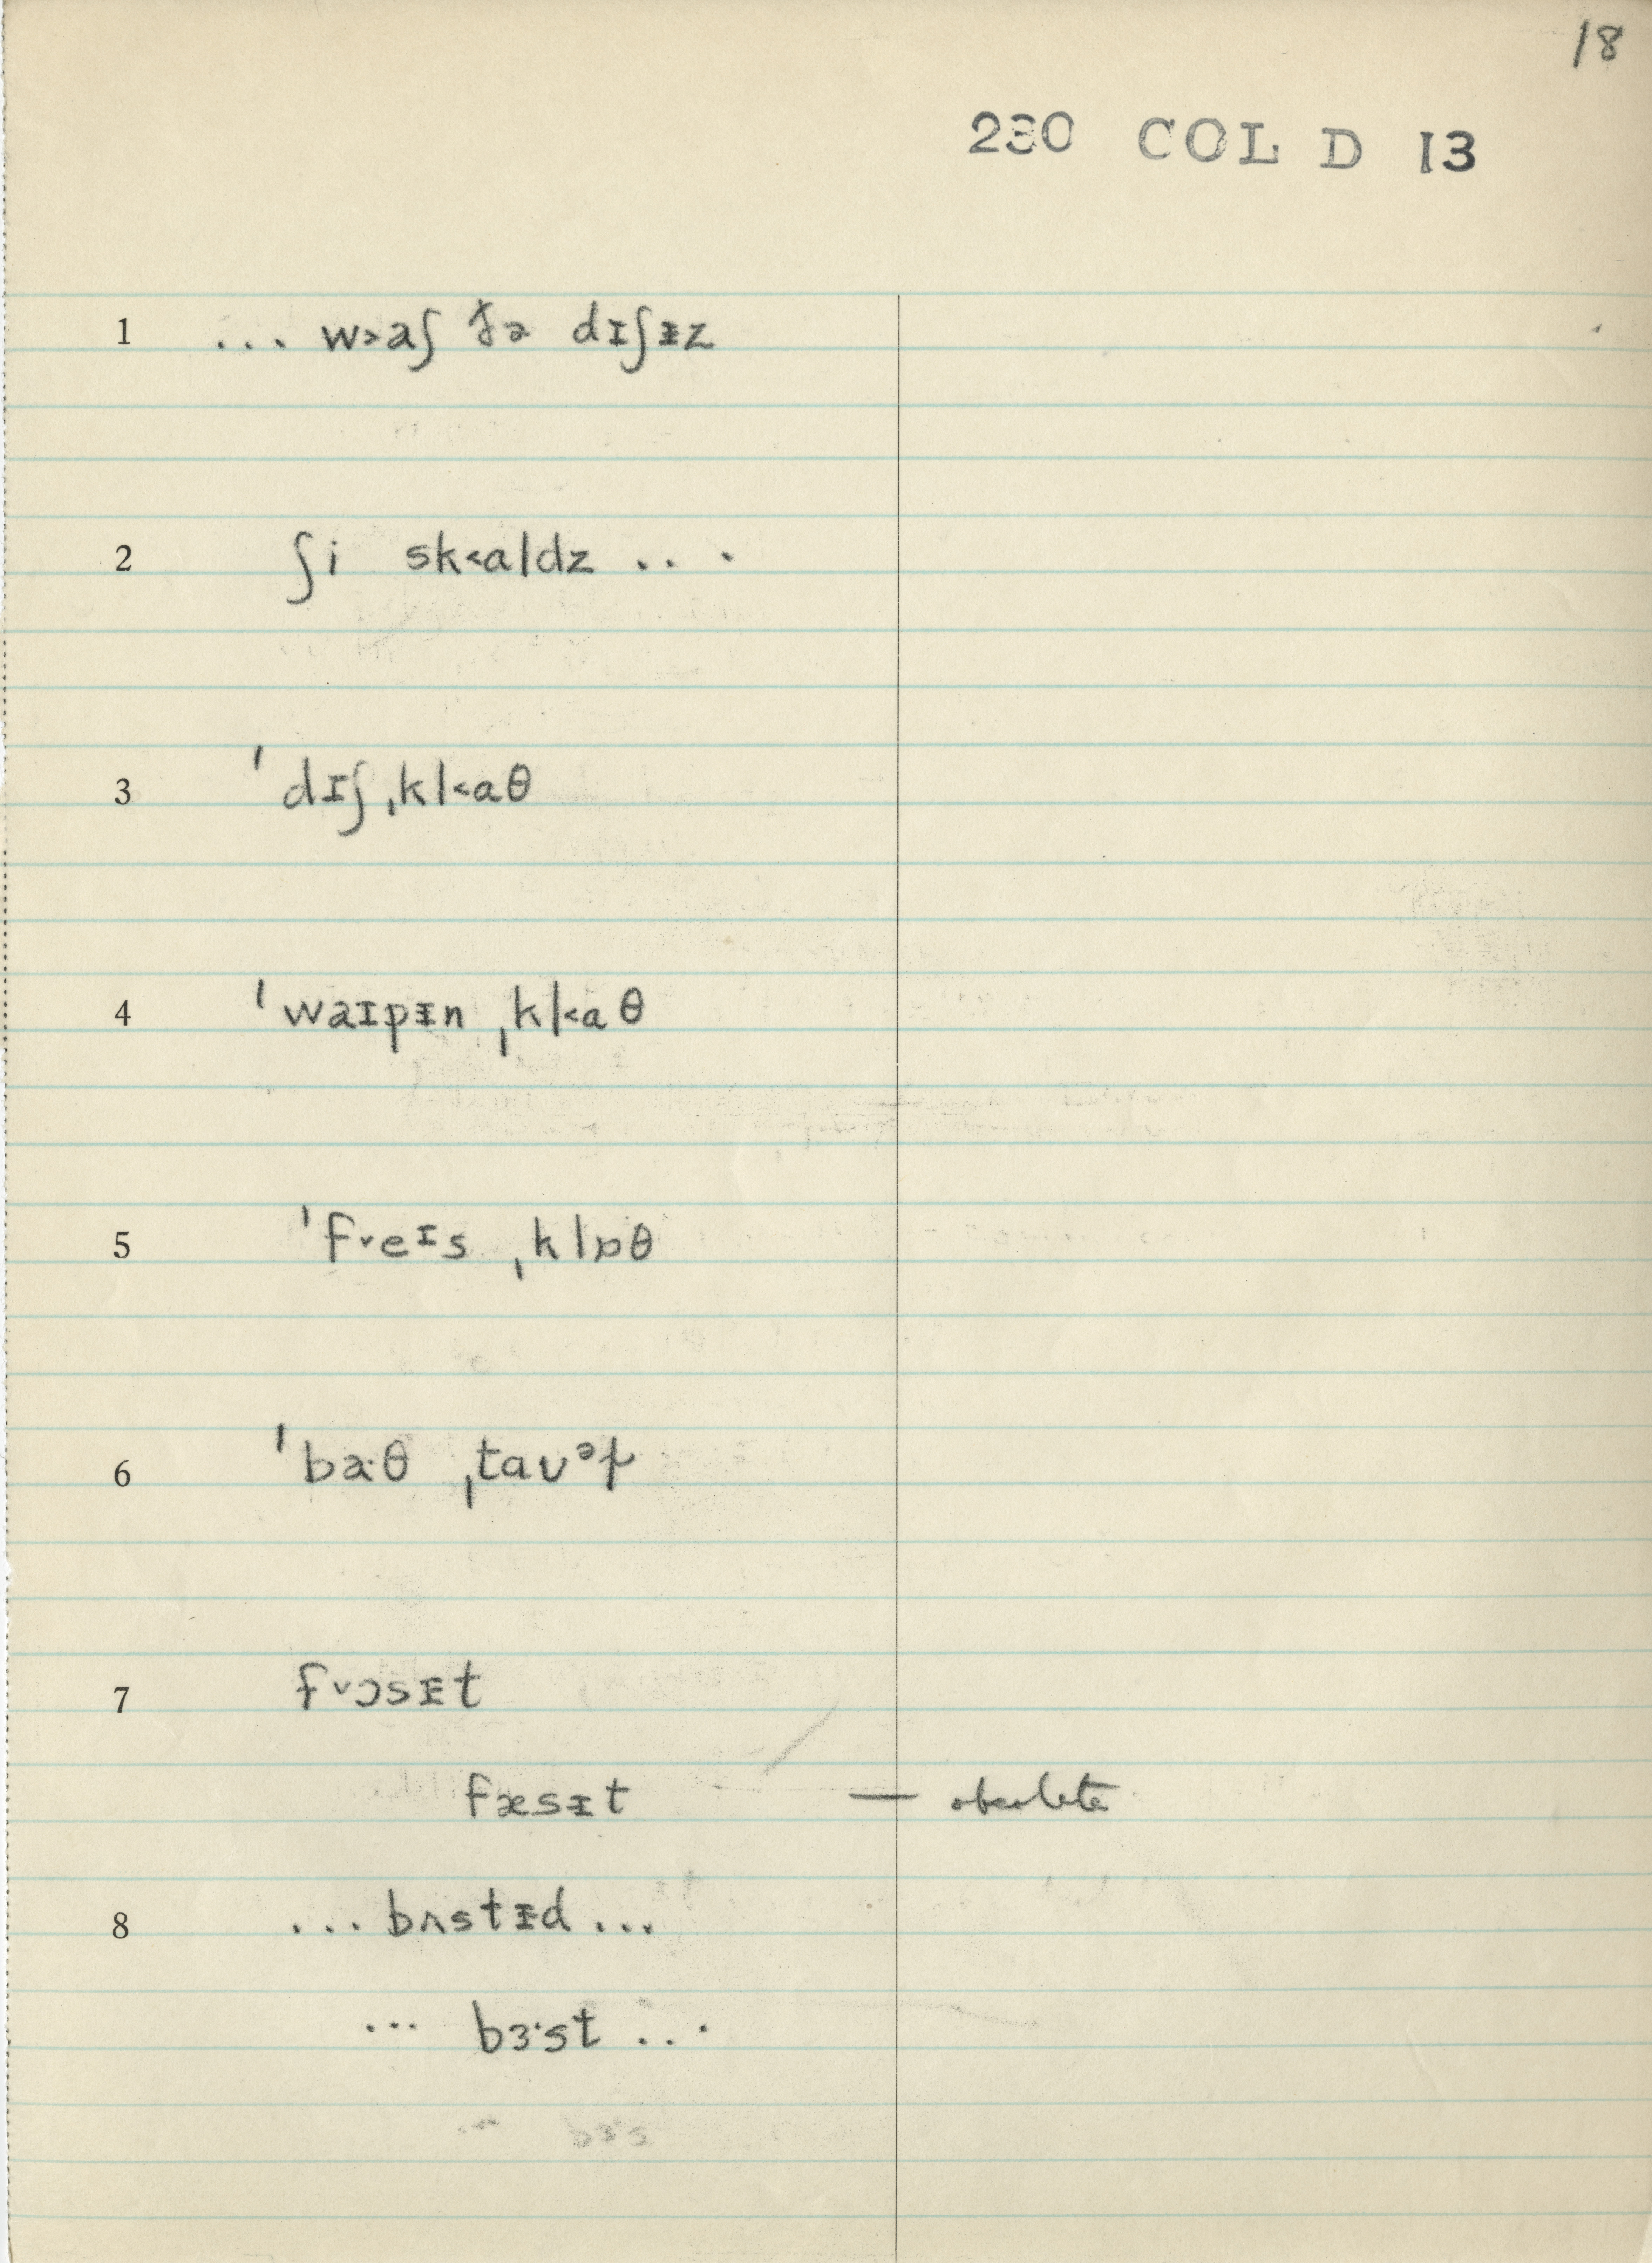 18
230 COL D 13
1 ... w˃aʃ ðə dɪʃᵻz
2 ʃi sk˂aldz ...
3 ˈdɪʃˌkl˂aθ
4 ˈwaɪpᵻn ˌkl˂aθ
5 ˈf˅eɪs ˌklɒθ
6 ˈbaˑθ ˌtaʊᵊɫ
7 f˅ɔsᵻt
fæsᵻt — obsolete
8 ... bʌstᵻd ...
... bɜˑst ...
... bɜˑs